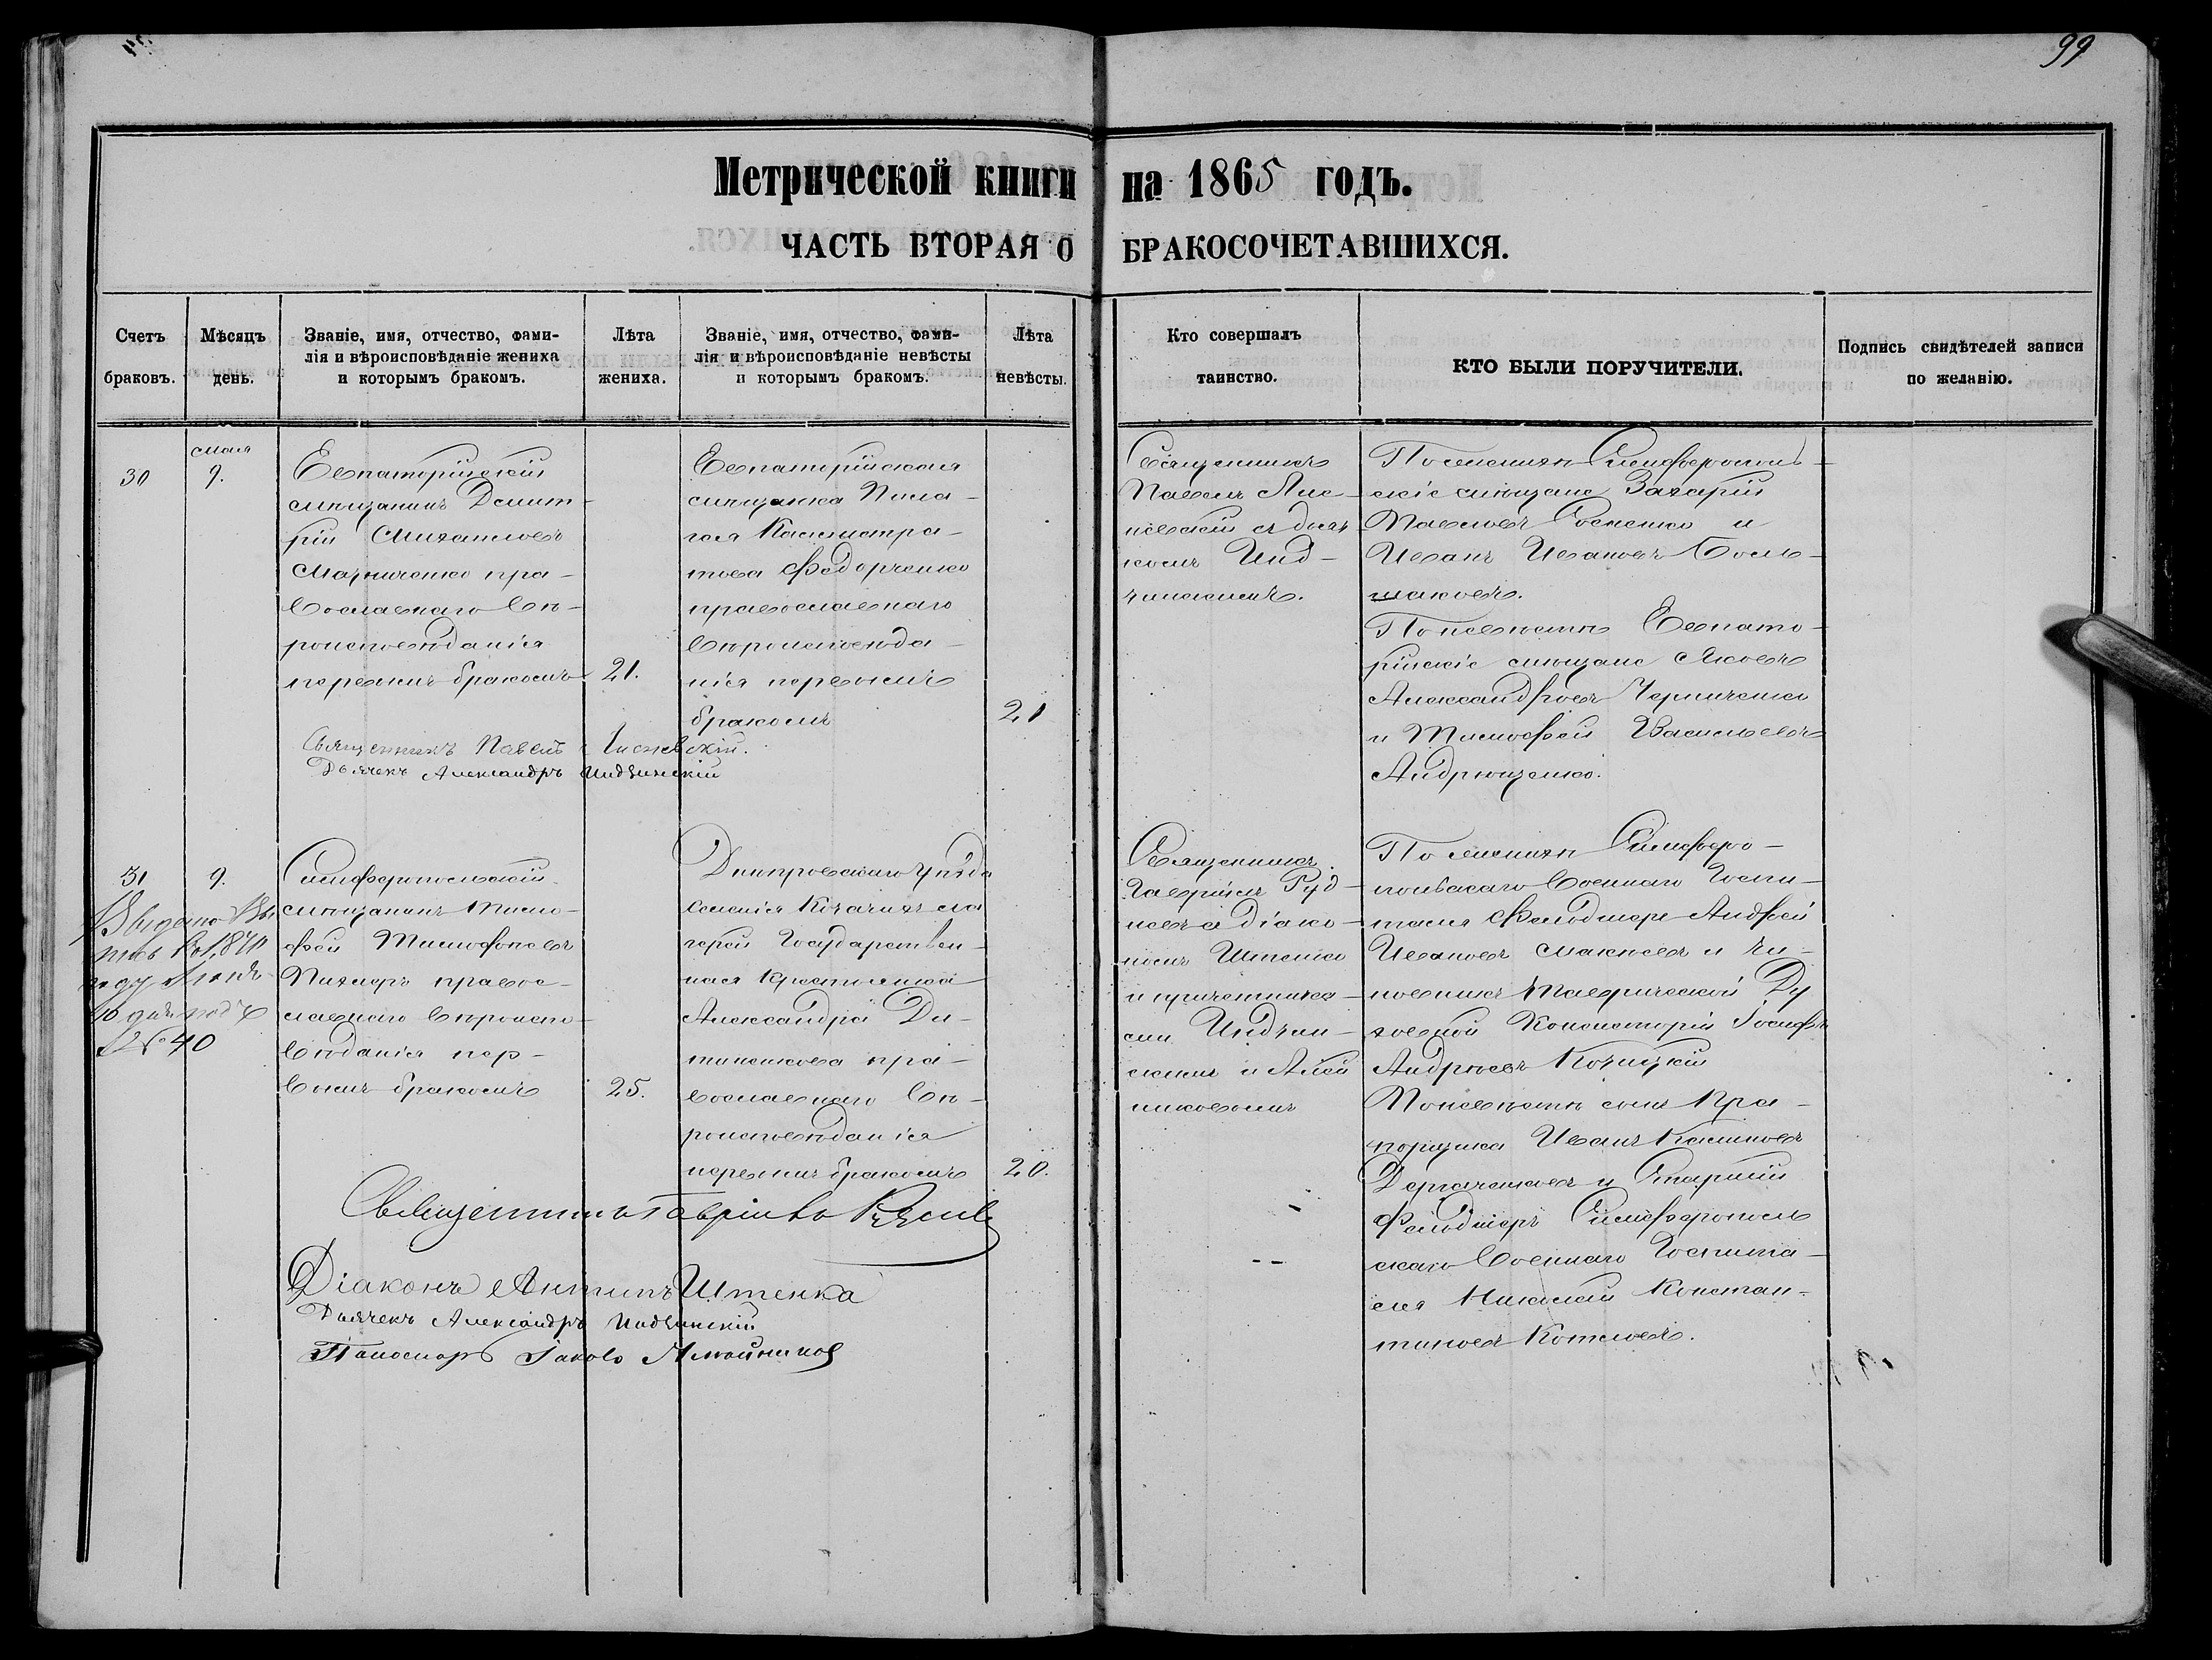 99
Метрической книги на 1865 годъ.
ЧАСТЬ ВТОРАЯ О БРАКОСОЧЕТАВШИХСЯ.
Счетъ
браковъ.
Мѣсяцъ
день.
Званіе, имя, отчество, фами-
лія и вѣроисповѣданіе жениха
и которымъ бракомъ.
Лѣта
жениха.
Званіе, имя, отчество, фами-
лія и вѣроисповѣданіе невѣсты
и которымъ бракомъ.
Лѣта
невѣсты.
Кто совершалъ
таинство.
КТО БЫЛИ ПОРУЧИТЕЛИ.
Подпись свидѣтелей записи
по желанію.
30
мая
9.
Евпаторійскій
мѣщанинъ Димит-
рій Михайловъ
пра-
вославнаго вѣ-
роисповѣданія
первымъ бракомъ
21.
Евпаторійская
мѣщанка Пела-
гея Каллистра-
това Федорченко
православнаго
вѣроисповѣда-
нія первымъ
бракомъ
21
Священникъ
Павелъ
съ дьяч-
комъ Инд-
Священникъ Павелъ
Дьячекъ Александръ Индзинскій
По женихѣ Симферополь-
скіе мѣщане Захарій
Павловъ и
Иванъ Ивановъ Боль-
шаковъ.
По невѣстѣ Евпато-
рійскіе мѣщане Яковъ
Александровъ Черниченко
и Тимофей Васильевъ
Андрющенко.
31
9.
Выдано
№ 40
Симферопольскій
мѣщанинъ Тимо-
фей Тимофеевъ
правос-
лавнаго вѣроиспо-
вѣданія пер-
вымъ бракомъ
25.
Днѣпровскаго уѣзда
селенія
Государствен-
ная крестьянка
Александра Ди-
пра-
вославнаго вѣ-
роисповѣданія
первымъ бракомъ
20.
Священникъ
Гавріилъ Руд-
невъ съ діако-
номъ Штенко
и причетника-
ми Индзин-
скимъ и Алей
никовымъ
По женихѣ Симферо-
польскаго Военнаго Госпи-
таля Фельдшеръ Андрей
Ивановъ и чи-
новникъ Таврической Ду
ховной Консисторіи Іосифъ
Андреевъ
По невѣстѣ сынъ Пра-
порщика Иванъ
и Старшій
Фельдшеръ Симферополь
скаго Военнаго Госпита-
ля Николай Констан-
тиновъ Котловъ.
Священникъ Гавріилъ
Діаконъ Антипъ Штенка
Дьячекъ Александръ Индзинскій
Паномарь Іаковъ